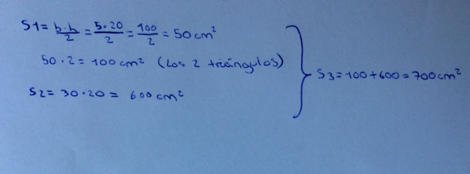 S1 = b·h/2 = 5·20/2 = 100/2 = 50 cm²
50·2 = 100 cm² (Los 2 triángulos)
S3 = 100 + 600 = 700 cm²
S2 = 30·20 = 600 cm²